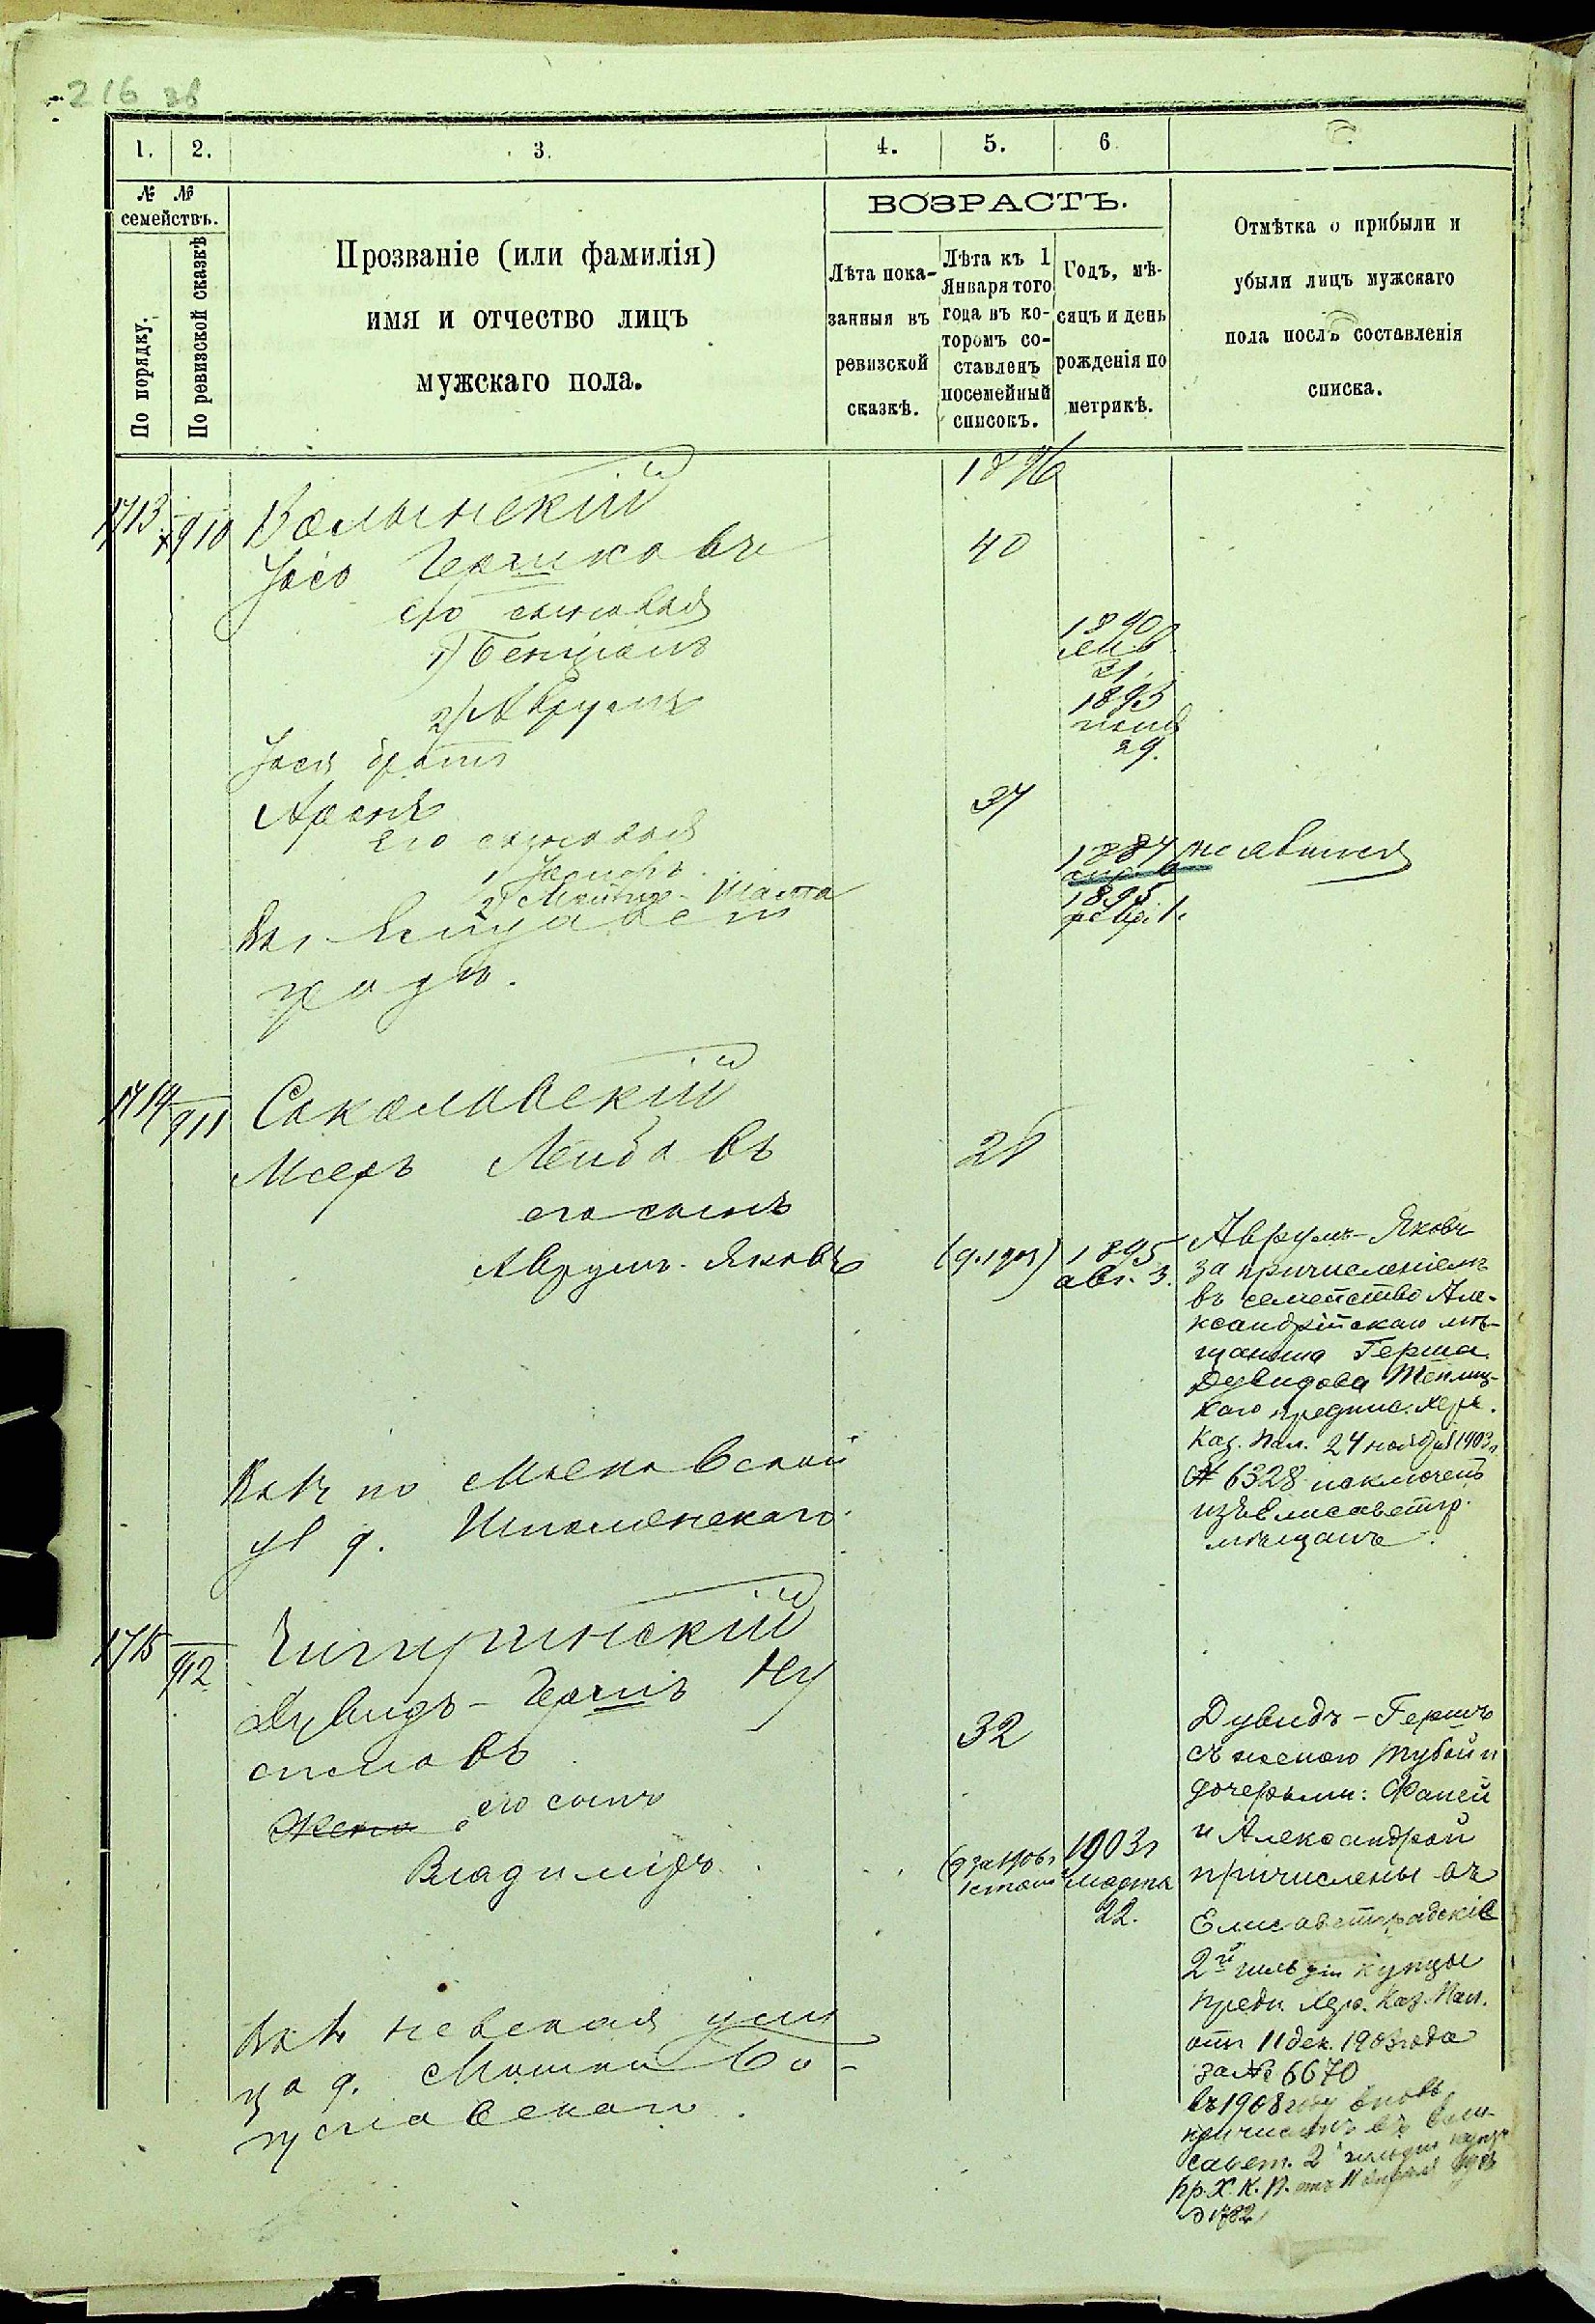 216 об
1. 2. 3. 4. 5. 6
№ №
семействъ.
По порядку.
По ревизской сказкѣ
Прозваніе (или фамилія)
имя и отчество лицъ
мужскаго пола.
ВОЗРАСТЪ.
Лѣта пока-
занныя въ
ревизской
сказкѣ.
Лѣта къ 1
Января того
года въ ко-
торомъ со-
ставленъ
посемейный
списокъ.
Годъ, мѣ-
сяцъ и день
рожденія по
метрикѣ.
Отмѣтка о прибыли и
убыли лицъ мужскаго
пола послѣ составленія
списка.
1896
1713 910 Волынскій
Іосъ Гершковъ 40
его сыновья
1) Бенціонъ 1890 янв. 21
2) Аврумъ 1895 29.
Іося братъ
Аронъ 37
его сыновья
1887 не явился
2) Шая 1895 1.
градѣ.
1714 911 Соколовскій
Мсеръ Лейбовъ
его сынъ
Аврумъ-Яковъ 1895 авг. 3.
Аврумъ-Яковъ
за причисленіемъ
въ семейство Але-
ксандрійскаго мѣ-
щанина Герша
Дувидова Теплиц-
каго предпис. Хер.
Каз. Пал. 24 ноября 1903 г.
№ 6328 исключенъ
изъ Елисаветгр.
мѣщанъ.
по Московской
ул д. Шполянскаго
1715 912 Чигиринскій
Дувидъ-Гершъ Ну
симовъ 32
Жена его сынъ
Владиміръ 1903 г марта 22.
Дувидъ-Гершъ
съ женою Тубой и
дочерьми: Фаней
и Александрой
причислены въ
Елисаветградскіе
2й гильдіи купцы
предп. Хер. Каз. Пал.
отъ 11 дек. 1903 года
за № 6670
въ 1908 году вновь
причисленъ въ Ели-
савет. 2 гильдіи
пр. Х. К. П.
№ 1782
Невская ули
ца д. Мошки Бо-
гуславскаго